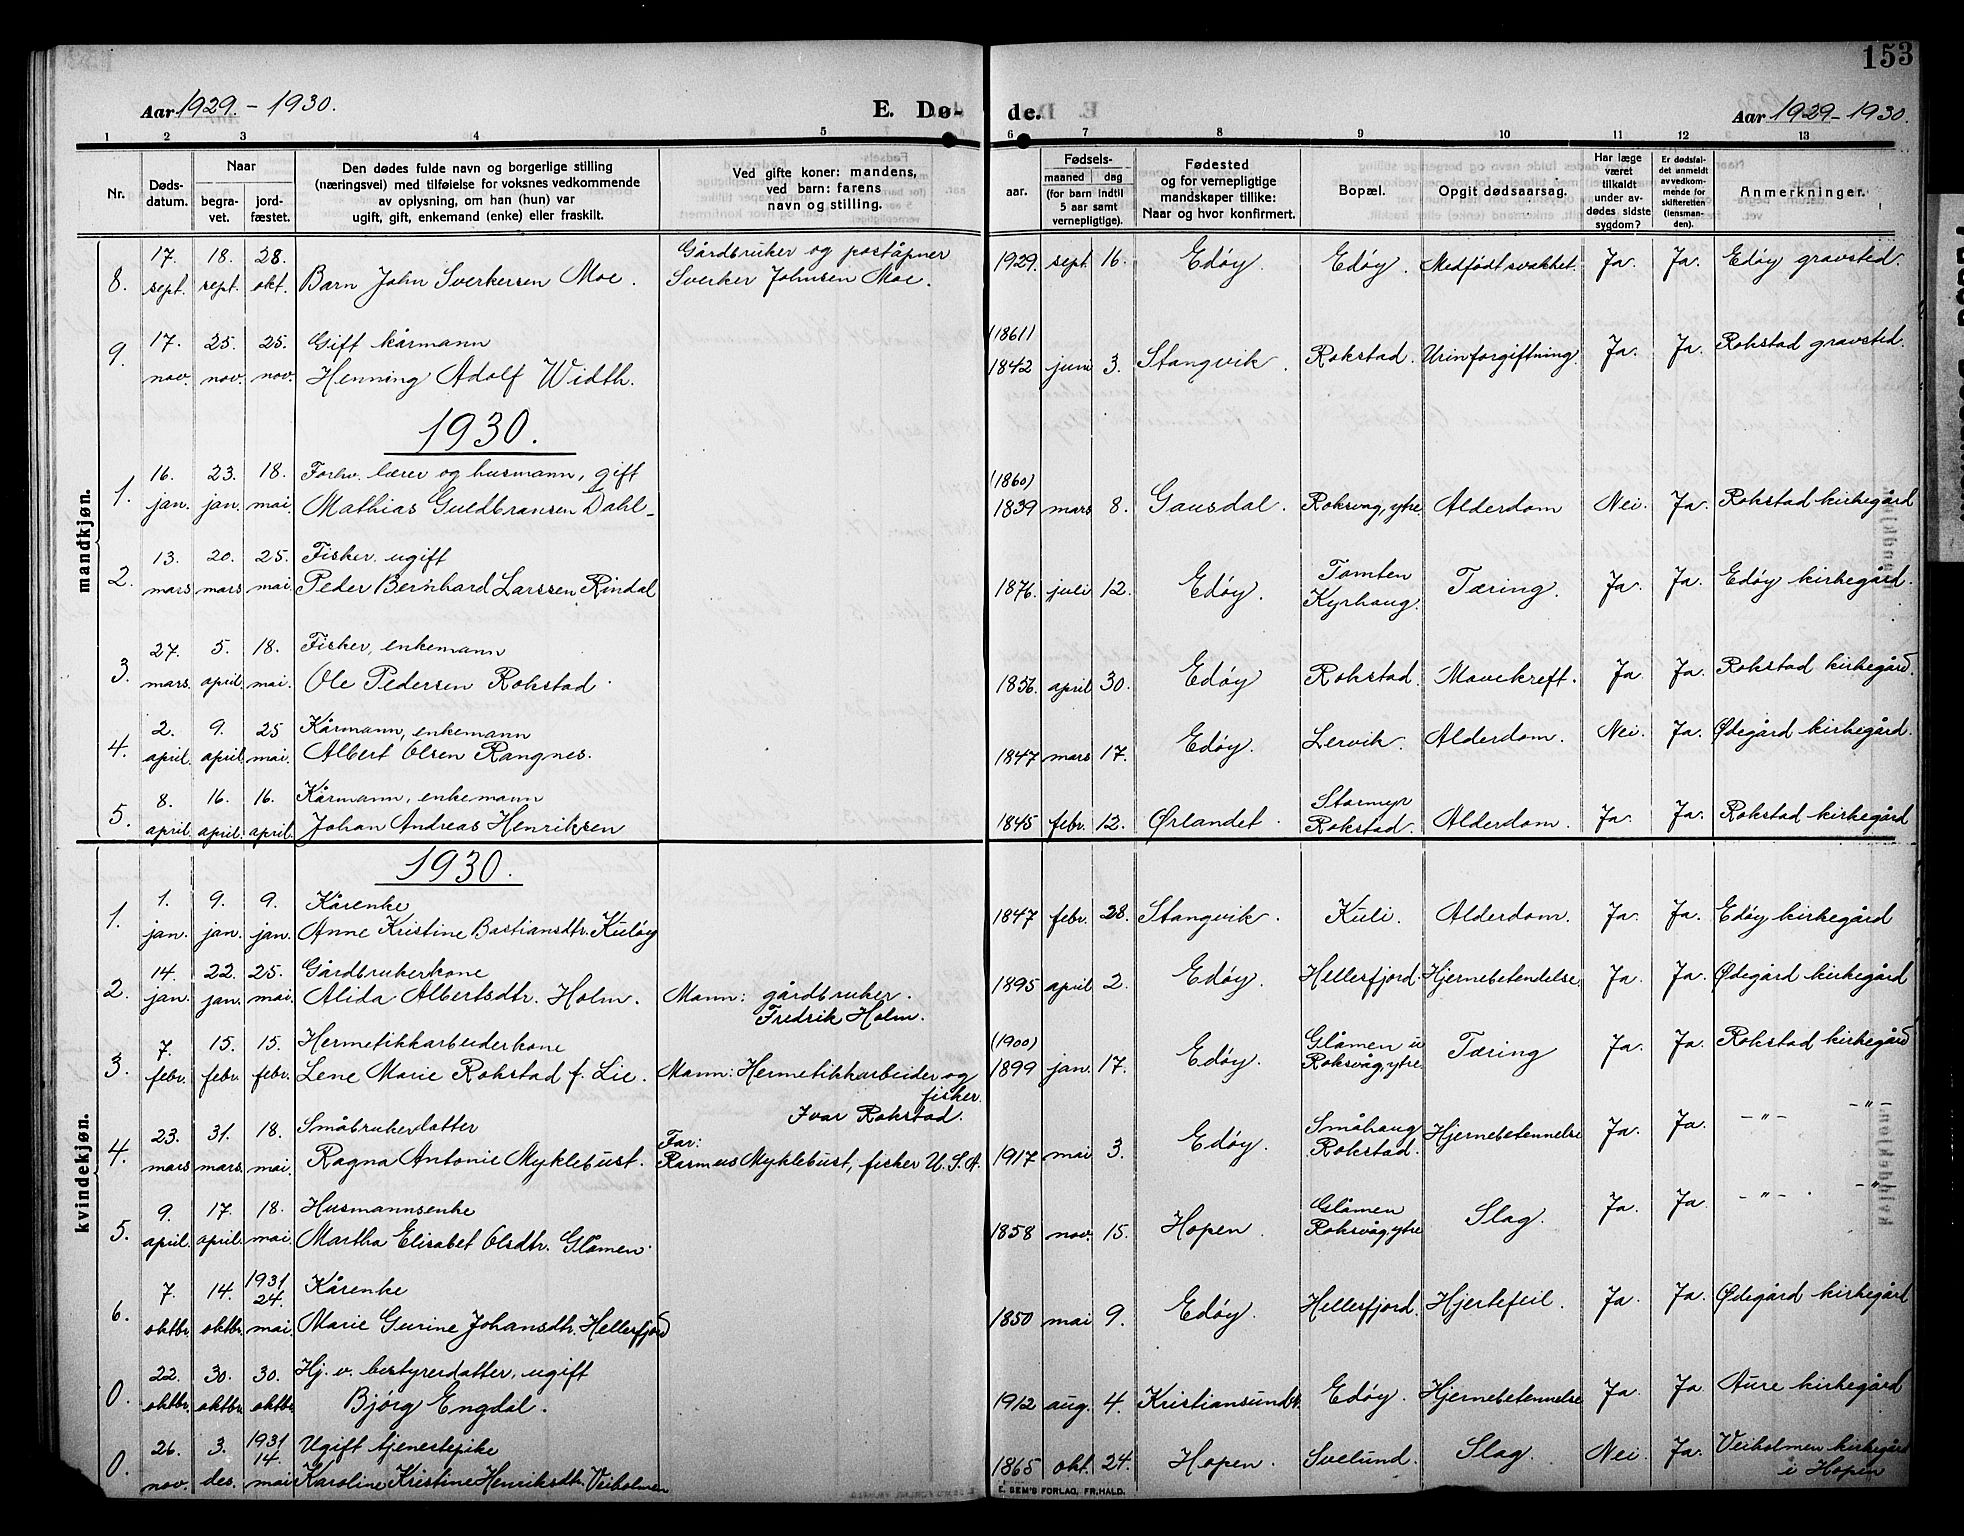 153
Aar 1929. - 1930.
E. Dø-
de.
Aar 1929 - 1930.
1 2 3 4 5 6 7 8 9 10 11 12 13
Nr.
Døds-
datum.
Naar
begra-
vet.
jord-
fæstet.
Den dødes fulde navn og borgerlige stilling
(næringsvei) med tilføielse for voksnes vedkommende
av oplysning, om han (hun) var
ugift, gift, enkemand (enke) eller fraskilt.
Ved gifte koner: mandens,
ved barn: farens
navn og stilling.
Fødsels-
aar.
maaned
dag
(for barn indtil
5 aar samt
vernepligtige).
Fødested
og for vernepligtige
mandskaper tillike:
Naar og hvor konfirmert.
Bopæl.
Opgit dødsaarsag.
Har læge
været
tilkaldt
under av-
dødes sidste
sygdom?
Er dødsfal-
det anmeldt
av vedkom-
mende for
skifteretten
(lensman-
den).
Anmerkninger.
mandkjøn.
17. 18. 28. Gårdbruker og poståpner
8. sept. sept. okt. Barn John Sverkersen Moe. Sverker Johnsen Moe. 1929. sept. 16. Edøy. Edøy. Medfødt svakhet. Ja. Ja. Edøy gravsted.
17. 25. 25. Gift kårmann (1861)
9. nov. nov. nov. Henning Adolf Width. 1842 juni 3. Stangvik. Rokstad. Urinforgiftning. Ja. Ja. Rokstad gravsted.
1930.
16. 23. 18. Forhv. lærer og husmann, gift (1860)
1. jan. jan. mai. Mathias Guldbransen Dahl- 1839 mars 8. Gausdal. Roksvåg, ytre Alderdom Nei. Ja. Rokstad kirkegård
13. 20. 25. Fisker, ugift Tomten
2. mars mars mai Peder Bernhard Larssen Rindal 1876. juli 12. Edøy. Kyrhaug. Tæring. Ja. Ja. Edøy kirkegård.
27. 5. 18. Fisker, enkemann
3. mars. april. mai. Ole Pedersen Rokstad. 1856. april 30. Edøy Rokstad. Mavekreft. Ja. Ja. Rokstad kirkegård.
2. 9. 25 Kårmann, enkemann
4. april. april. mai. Albert Olsen Rangnes. 1847 mars 17. Edøy. Lervik. Alderdom. Nei. Ja. Ødegård kirkegård.
8. 16. 16. Kårmann, enkemann Stormyr
5. april. april. april. Johan Andreas Henriksen 1845 febr. 12. Ørlandet. Rokstad. Alderdom. Ja. Ja. Rokstad kirkegård
kvindekjøn.
1930.
1. 9. 9. Kårenke
1. jan. jan. jan. Anne Kristine Bastiansdtr. Kuløy 1847 febr. 28. Stangvik. Kuli. Alderdom. Ja. Ja. Edøy kirkegård
14. 22. 25. Gårdbrukerkone
2. jan. jan. mai Alida Albertsdtr. Holm. Mann: gårdbruker. 1895 april 2. Edøy. Hellerfjord. Hjernebetendelse. Ja. Ja. Ødegård kirkegård
Fredrik Holm.
7. 15. 15. Hermetikkarbeiderkone (1900) Glåmen u
3. febr. febr. febr. Lene Marie Rokstad f. Lie. Mann: Hermetikkarbeider og 1899 jan. 17. Edøy. Roksvåg, ytre Tæring Ja. Ja. Rokstad kirkegård
fisker.
Ivar Rokstad.
23. 31. 18. Småbrukerdatter Far: Småhaug
4. mars mars. mai. Ragna Antonie Myklebust. Rasmus Myklebust, fisker U.S.A. 1917 mai 3. Edøy. Rokstad. Hjernebetennelse Ja. Ja. -"- -"-
9. 17. 18. Husmannsenke Glåmen
5. april. april. mai. Martha Elisabet Olsdtr. Glåmen. 1858 nov. 15. Hopen. Roksvåg, ytre Slag. Ja. Ja. -"- -"-
1931
7. 14. 24. Kårenke
6. oktbr. oktbr. mai. Marie Gurine Johansdtr. Hellerfjord 1850 mai 9. Edøy. Hellerfjord. Hjertefeil. Ja. Ja. Ødegård kirkegård
22. 30. 30. Hj. v. bestyrerdatter, ugift
0. oktbr. oktbr. oktbr. Bjørg Engdal. 1912 aug. 4. Kristiansund N. Edøy. Hjernebetennelse Ja. Ja. Aure kirkegård
1931
26. 3. 14. Ugift tjenestepike
0. nov. des. mai Karoline Kristine Henriksdtr. Veiholmen 1865 okt. 24. Hopen. Svelund. Slag. Nei. Ja. Veiholmen kirkegård
i Hopen
E. SEM'S FORLAG, FR.HALD.